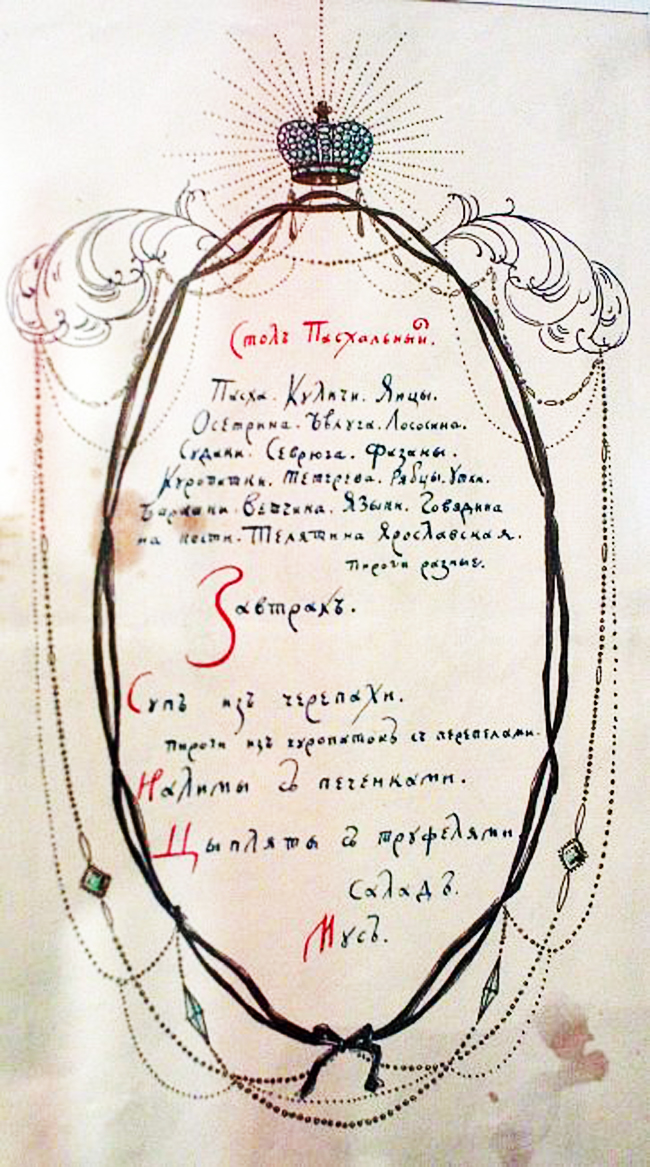 Столъ Пасхальный.
Пасха. Куличи. Яицы.
Осетрина. Бѣлуга. Лососина.
Судаки. Севрюга. Фазаны.
Куропатки. Тетерева. Рябцы. Утки.
Барашки. Ветчина. Языки. Говядина
на кости. Телятина Ярославская.
Пироги разные.
Завтракъ.
Супъ изъ черепахи.
Пироги изъ куропатокъ съ перепелами.
Налимы съ печенками.
Цыпляты съ труфелями.
Саладъ.
Мусъ.